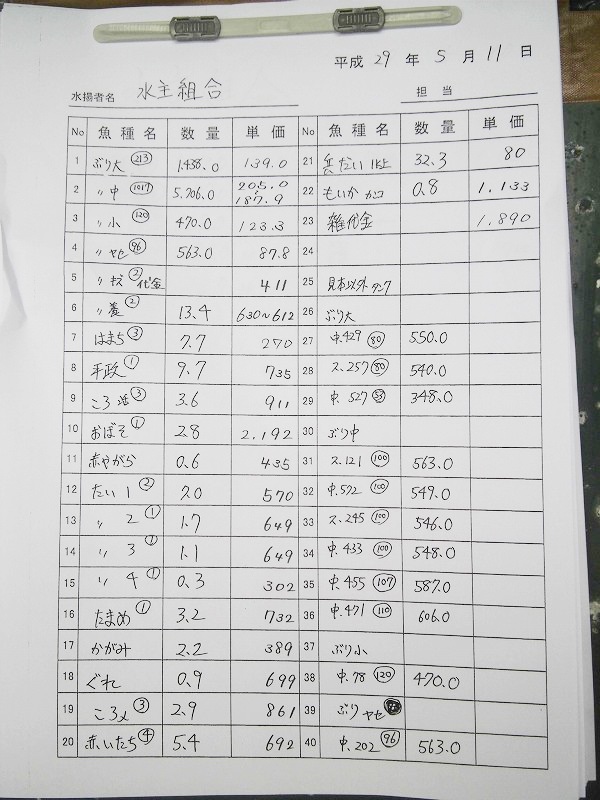 平成 29 年 5 月 11 日
水揚者名 水主組合 担当
No 魚種名 数量 単価 No 魚種名 数量 単価
1 ぶり大 213 1.438.0 139.0 21 兵だい 1k上 32.3 80
2 〃 中 1017 5.706.0 205.0 187.9 22 もいか カゴ 0.8 1.133
3 〃 小 120 470.0 123.3 23 雑代金 1.890
4 〃 ヤセ 96 563.0 87.8 24
5 〃 キズ 2 代金 411 25 見本以外タンク
6 〃 養 2 13.4 630~612 26 ぶり大
7 はまち 3 7.7 270 27 中.429 80 550.0
8 平政 1 9.7 735 28 ス.257 80 540.0
9 ころ 3 3.6 911 29 中.527 53 348.0
10 おぼそ 1 2.8 2.192 30 ぶり中
11 赤やがら 0.6 435 31 ス.121 100 563.0
12 たい 1 2 2.0 570 32 中.572 100 549.0
13 〃 2 1 1.7 649 33 ス.245 100 546.0
14 〃 3 1 1.1 649 34 中.433 100 548.0
15 〃 4 1 0.3 302 35 中.455 107 587.0
16 たまめ 1 3.2 732 36 中.471 110 606.0
17 かがみ 2.2 389 37 ぶり小
18 ぐれ 0.9 699 38 中.78 120 470.0
19 ころメ 3 2.9 861 39 ぶりヤセ
20 赤いたち 4 5.4 692 40 中.202 96 563.0